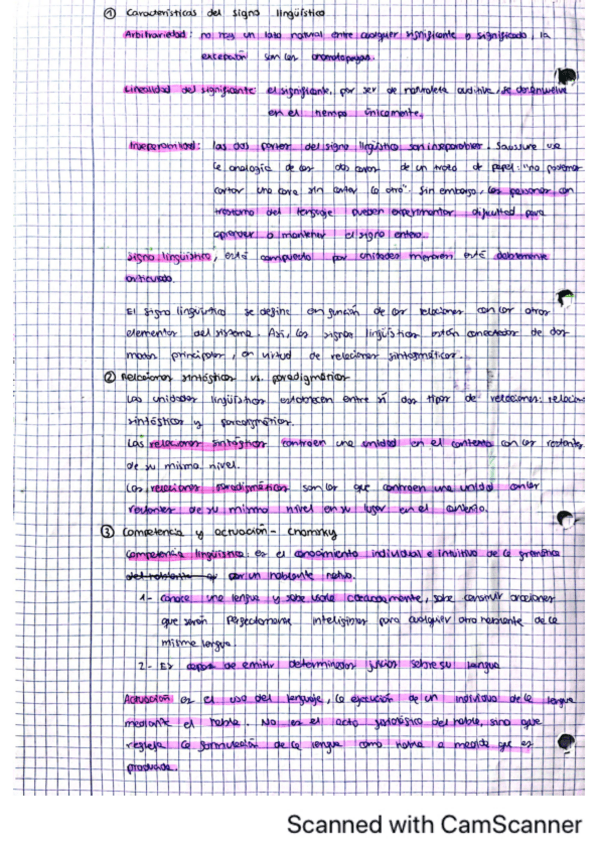 ① Características del signo lingüístico
Arbitrariedad: no hay un lazo natural entre cualquier significante y significado, la
excepción son las onomatopeyas.
Linealidad del significante: el significante, por ser de naturaleza auditiva, se desenvuelve
en el tiempo únicamente.
Inseparabilidad: las dos partes del signo lingüístico son inseparables. Saussure usa
la analogía de las dos caras de un trozo de papel: "no podemos
cortar una cara sin cortar la otra". Sin embargo, las personas con
trastorno del lenguaje pueden experimentar dificultad para
aprender o mantener el signo entero.
Signo lingüístico, está compuesto por unidades menores, está doblemente
articulado.
El signo lingüístico se define en función de las relaciones con los otros
elementos del sistema. Así, los signos lingüísticos están conectados de dos
modos principales, en virtud de relaciones sintagmáticas.
② Relaciones sintágticas vs. paradigmáticas
Las unidades lingüísticas establecen entre sí dos tipos de relaciones: relacion
sintágticas y
Las relaciones sintágticas contraen una unidad en el contexto con las restantes
de su mismo nivel.
Las relaciones paradigmáticas son las que contraen una unidad con las
restantes de su mismo nivel en su lugar en el contexto.
③ Competencia y actuación - Chomsky
Competencia lingüística: es el conocimiento individual e intuitivo de la gramática
del hablante por un hablante nativo.
1- Conoce una lengua y sabe usarla sabe construir oraciones
que serán perfectamente inteligibles para cualquier otro hablante de la
misma lengua.
2- Es capaz de emitir determinados juicios sobre su lengua
Actuación es el uso del lenguaje, la ejecución de un individuo de la lengua
mediante el habla. No es el acto del habla, sino que
refleja la formulación de la lengua como habla a medida que es
producida.
Scanned with CamScanner